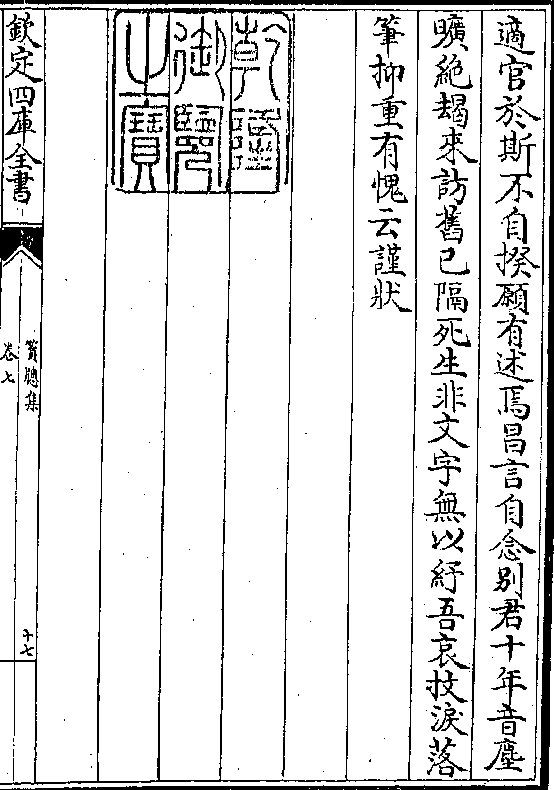 適官於斯不自揆願有述焉昌言自念别君十年音塵
曠絶朅來訪舊已隔死生非文字無以紓吾哀抆淚落
筆抑重有愧云謹狀
乾隆
御覽
之寶
欽定四庫全書
篔牕集
卷七
十七